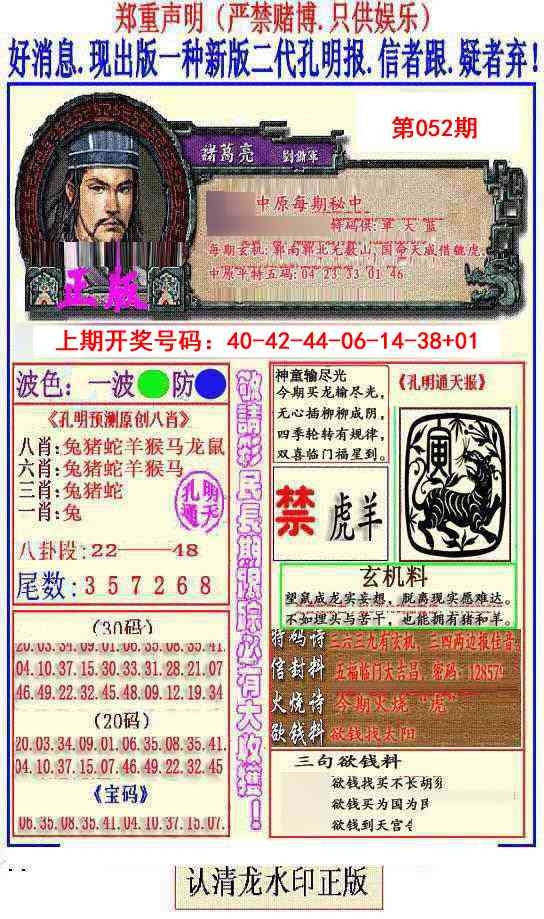 郑重声明（严禁赌博.只供娱乐）
好消息.现出版一种新版二代孔明报.信者跟.疑者弃！
第052期
諸葛亮
劉謝軍
中原每期秘中
特码供：单 天 蓝
中原平特五码：04 23 33 01 46
正版
上期开奖号码：40-42-44-06-14-38+01
波色：一波 防
《孔明预测原创八肖》
八肖:兔猪蛇羊猴马龙鼠
六肖:兔猪蛇羊猴马
三肖:兔猪蛇
一肖:兔
孔明
通天
八卦段:22——48
尾数:357268
(30码)
20.03.34.09.01.06.35.08.35.41
04.10.37.15.30.33.31.28.21.07
46.49.22.32.45.48.09.12.19.34
(20码)
20.03.34.09.01.06.35.08.35.41.
04.10.37.07.15.46.49.22.32.45
《宝码》
06.35.08.35.41.04.10.37.15.07.
敬請彩民長期跟踪必有大收獲！
神童输尽光
今期买龙输尽光，
无心插柳柳成阴，
四季轮转有规律，
双喜临门福星到。
禁
虎羊
《孔明通天报》
寅
玄机料
望鼠成龙实妄想，脱离现实愿难达。
不如埋头与苦干，也能拥有猪和羊。
特码诗 三六三九有玄机，三四两边报佳音
信封料 五福临门大吉昌，密码：12857
火烧诗 今期火烧“虎”
欲钱料 欲钱找太阳
三句欲钱料
欲钱找买不长胡
欲钱买为国为
欲钱到天宫
认清龙水印正版